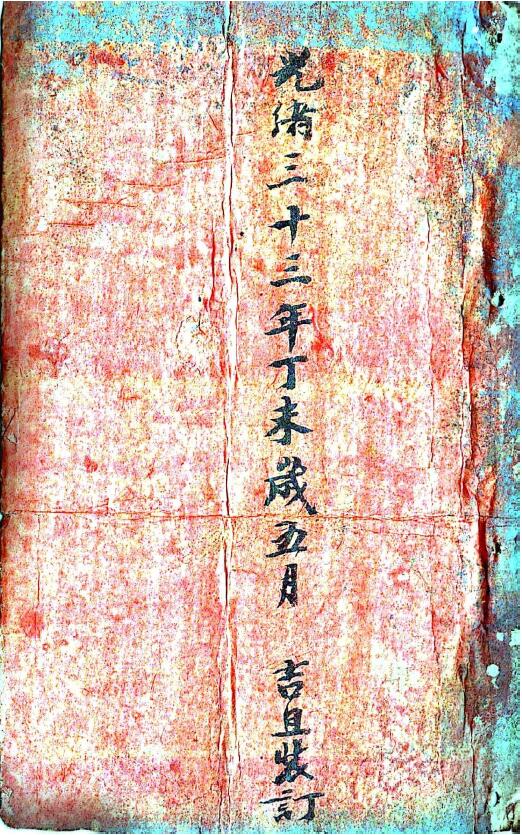 光緒三十三年丁未歲五月 吉旦裝訂